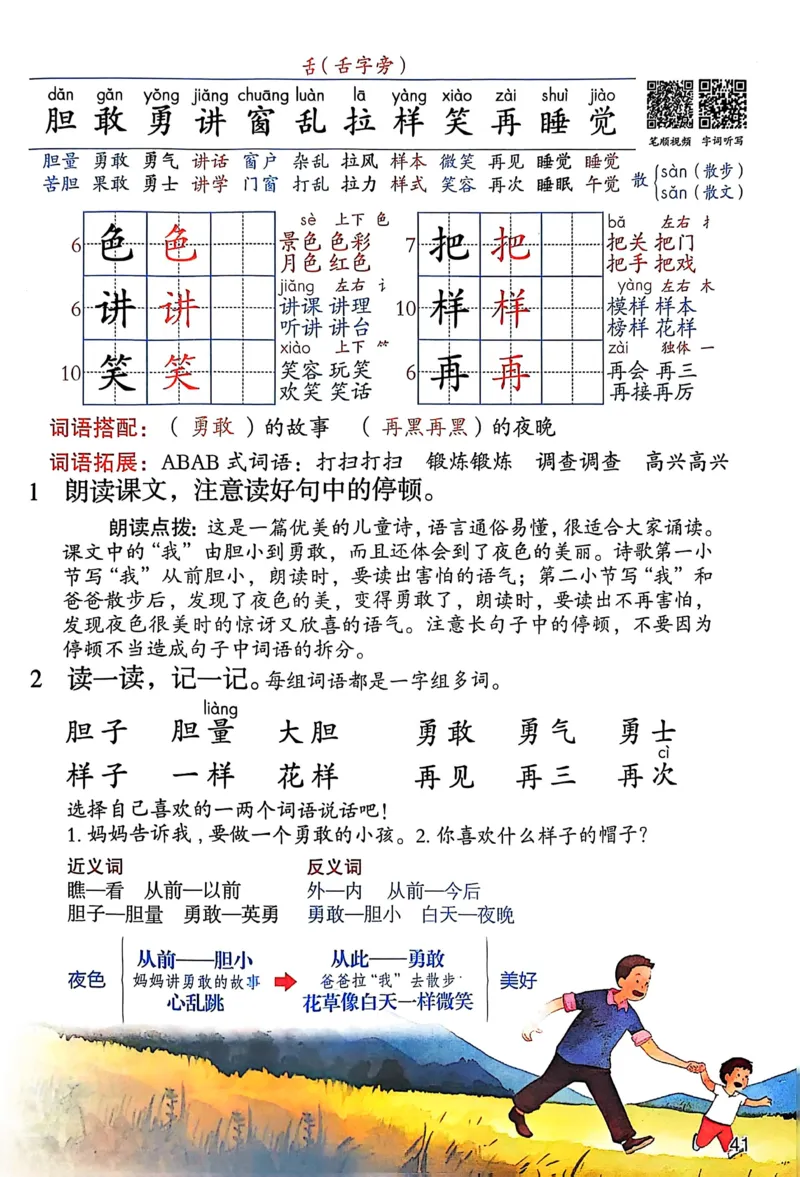 舌(舌字旁)
dǎn gǎn yǒng jiǎng chuāng luàn lā yàng xiào zài shuì jiào
胆 敢 勇 讲 窗 乱 拉 样 笑 再 睡 觉
笔顺视频 字词听写
胆量 勇敢 勇气 讲话 窗户 杂乱 拉风 样本 微笑 再见 睡觉 睡觉
苦胆 果敢 勇士 讲学 门窗 打乱 拉力 样式 笑容 再次 睡眠 午觉
散 sàn(散步)
sǎn(散文)
6 色 色 sè 上下 色
景色 色彩
月色 红色
7 把 把 bǎ 左右 扌
把关 把门
把手 把戏
6 讲 讲 jiǎng 左右 讠
讲课 讲理
听讲 讲台
10 样 样 yàng 左右 木
模样 样本
榜样 花样
10 笑 笑 xiào 上下 ⺮
笑容 玩笑
欢笑 笑话
6 再 再 zài 独体 一
再会 再三
再接再厉
词语搭配:(勇敢)的故事 (再黑再黑)的夜晚
词语拓展:ABAB 式词语:打扫打扫 锻炼锻炼 调查调查 高兴高兴
1 朗读课文,注意读好句中的停顿。
朗读点拨:这是一篇优美的儿童诗,语言通俗易懂,很适合大家诵读。
课文中的“我”由胆小到勇敢,而且还体会到了夜色的美丽。诗歌第一小
节写“我”从前胆小,朗读时,要读出害怕的语气;第二小节写“我”和
爸爸散步后,发现了夜色的美,变得勇敢了,朗读时,要读出不再害怕,
发现夜色很美时的惊讶又欣喜的语气。注意长句子中的停顿,不要因为
停顿不当造成句子中词语的拆分。
2 读一读,记一记。每组词语都是一字组多词。
liàng
胆子 胆量 大胆 勇敢 勇气 勇士
cì
样子 一样 花样 再见 再三 再次
选择自己喜欢的一两个词语说话吧!
1. 妈妈告诉我,要做一个勇敢的小孩。2. 你喜欢什么样子的帽子?
近义词 反义词
瞧—看 从前—以前 外—内 从前—今后
胆子—胆量 勇敢—英勇 勇敢—胆小 白天—夜晚
从前——胆小 从此——勇敢
夜色 妈妈讲勇敢的故事 爸爸拉“我”去散步 美好
心乱跳 花草像白天一样微笑
41